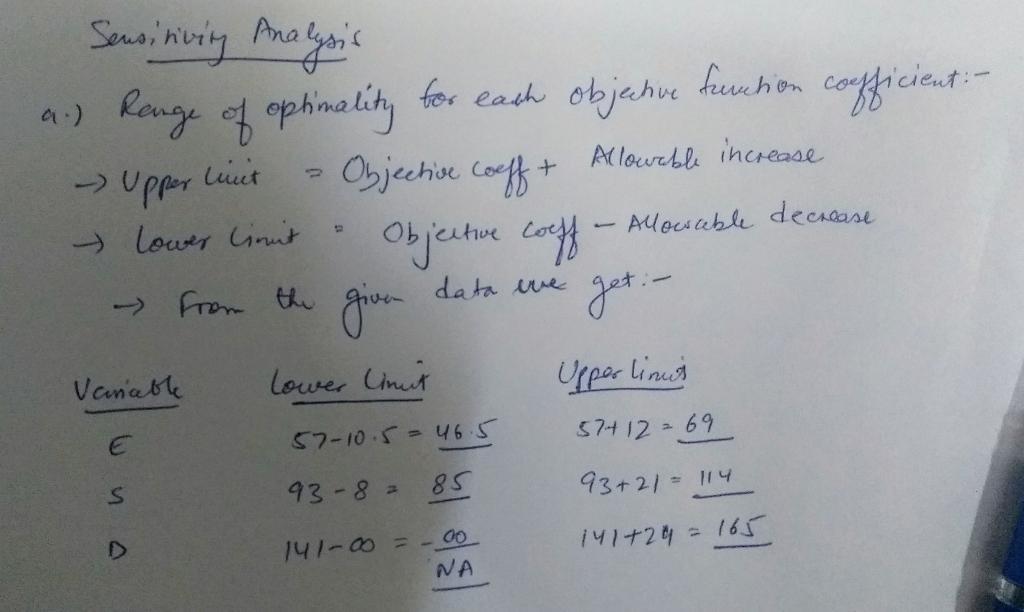 Sensitivity Analysis
a.) Range of optimality for each objective function coefficient:-
→ Upper limit = Objective coeff + Allowable increase
→ Lower limit = Objective coeff - Allowable decrease
→ From the given data we get:-
Variable Lower limit Upper limit
E 57-10.5 = 46.5 57+12 = 69
S 93-8 = 85 93+21 = 114
D 141-∞ = -∞ 141+24 = 165
NA